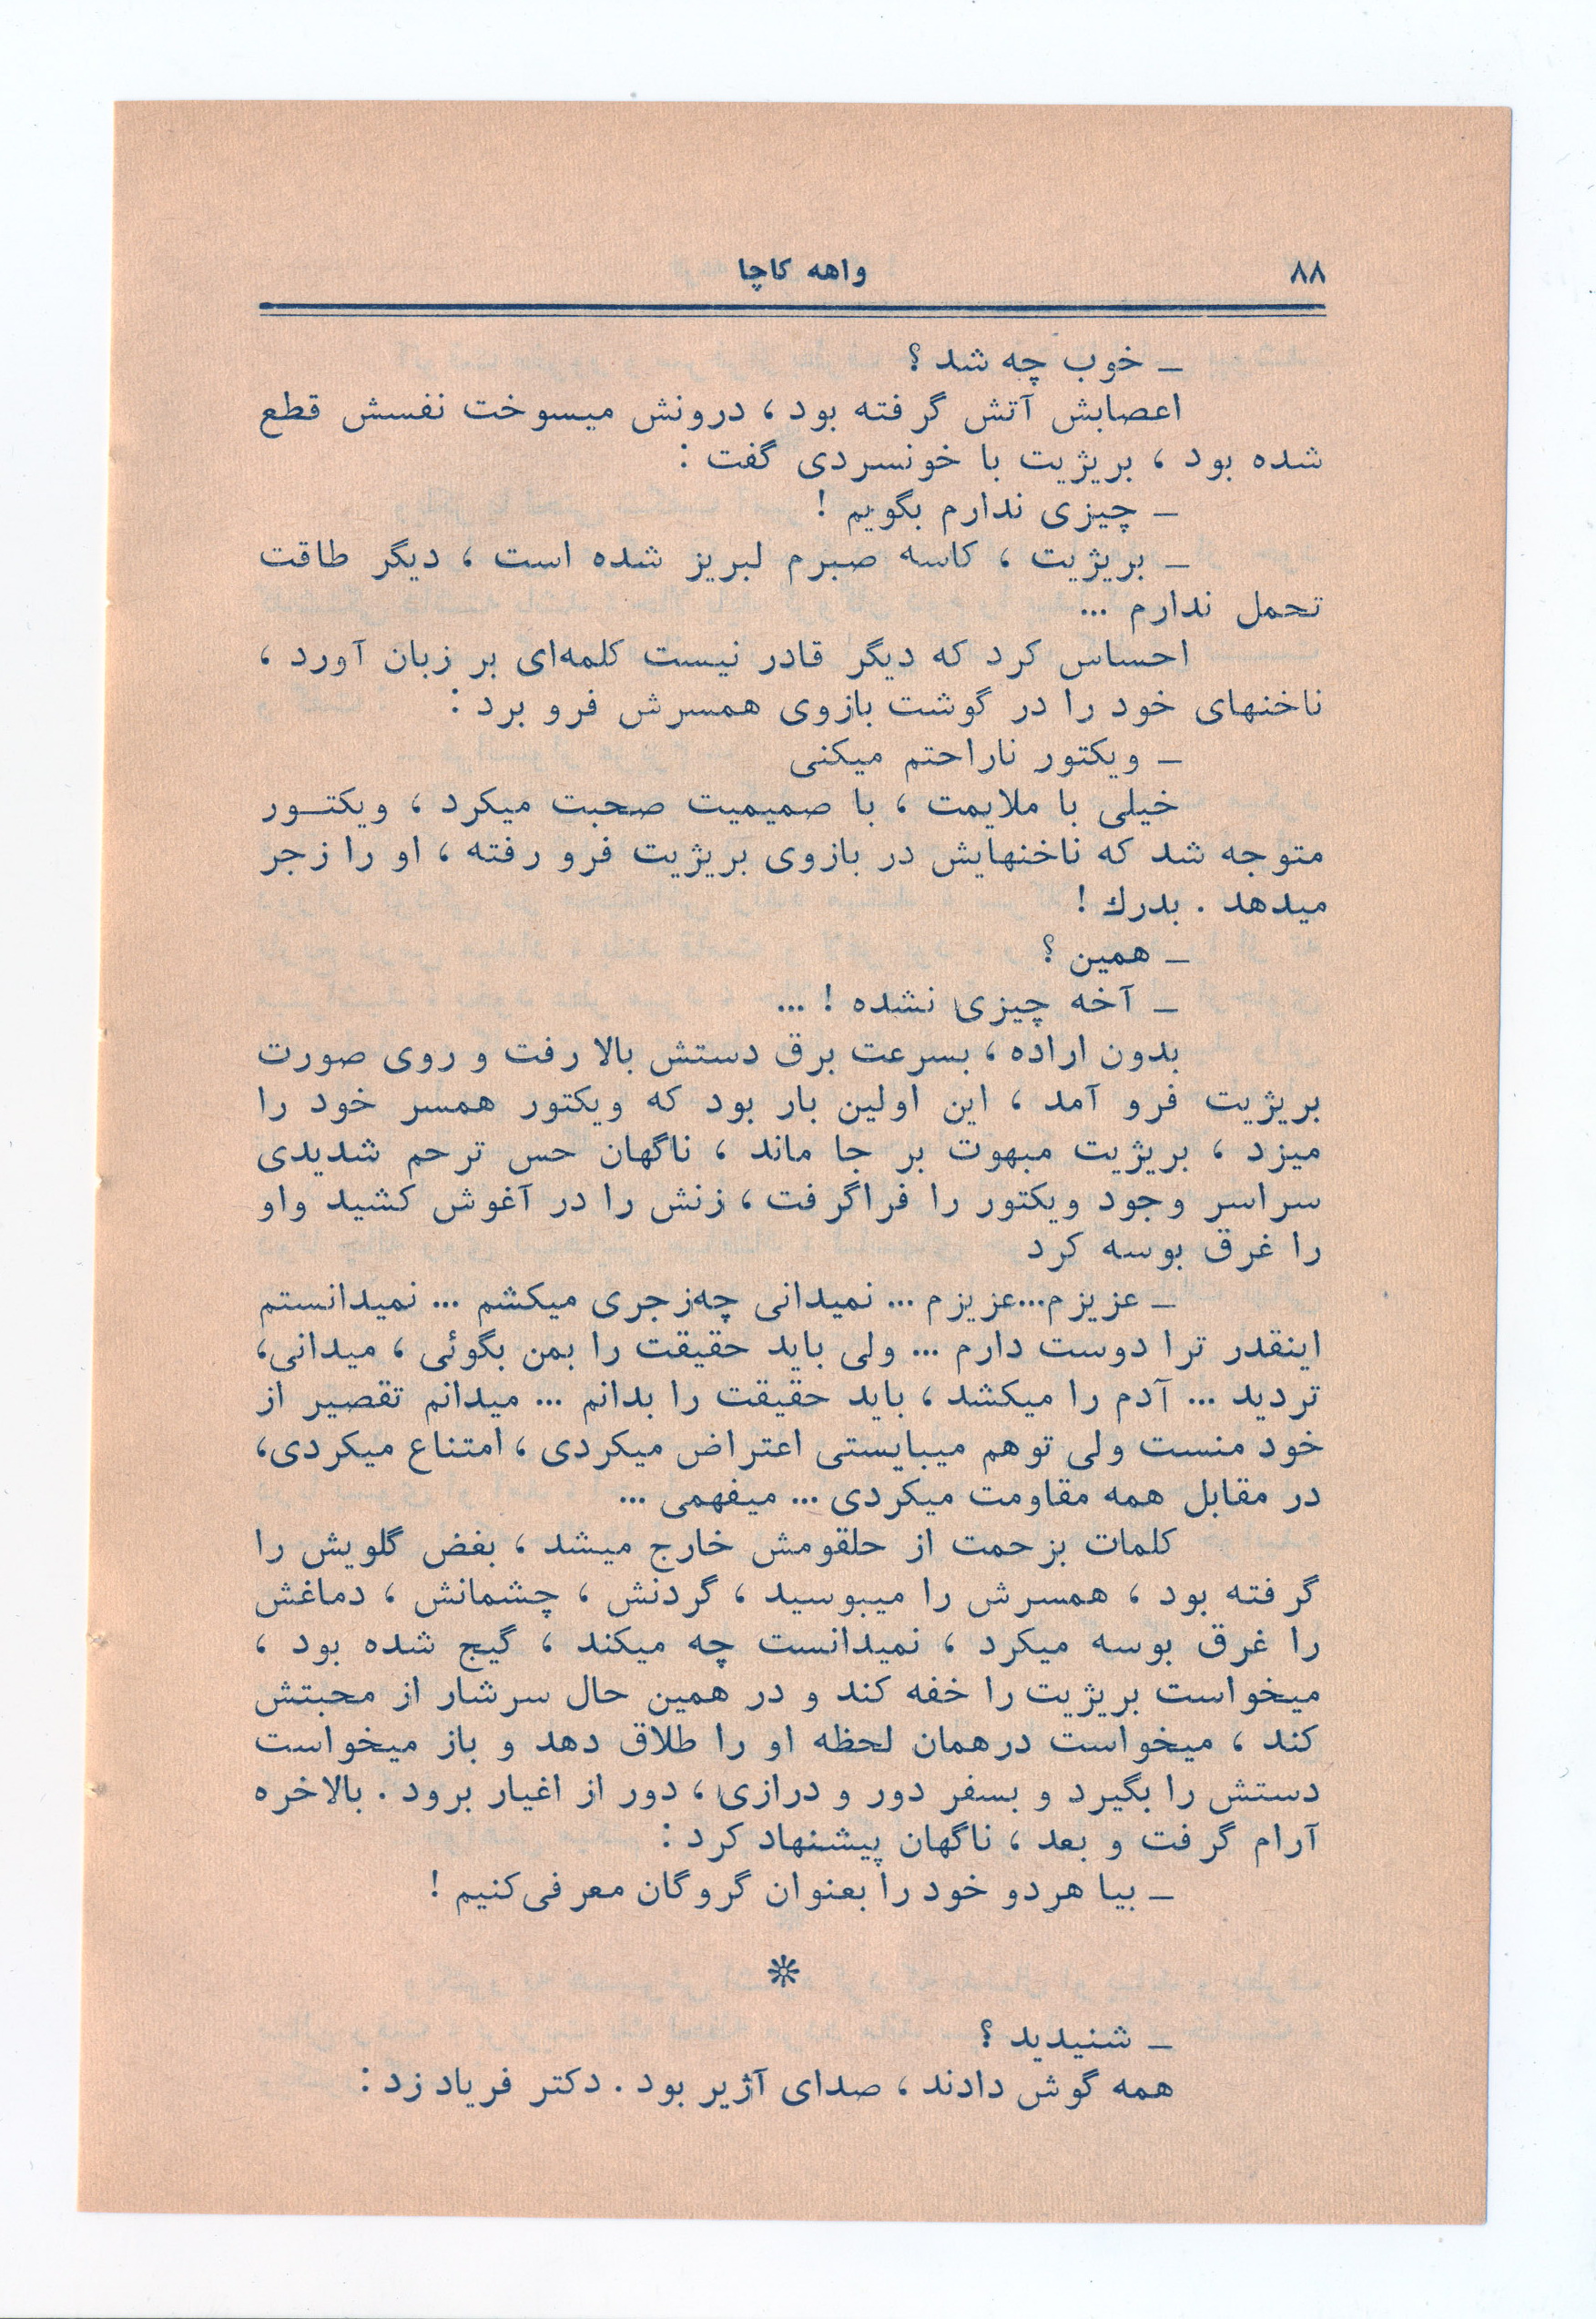 ۸۸
واهه کاچا
ـ خوب چه شد ؟
اعصابش آتش گرفته بود ، درونش میسوخت نفسش قطع
شده بود ، بریژیت با خونسردی گفت :
ـ چیزی ندارم بگویم !
ـ بریژیت ، کاسه صبرم لبریز شده است ، دیگر طاقت
تحمل ندارم ...
احساس کرد که دیگر قادر نیست کلمه‌ای بر زبان آورد ،
ناخنهای خود را در گوشت بازوی همسرش فرو برد :
ـ ویکتور ناراحتم میکنی
خیلی با ملایمت ، با صمیمیت صحبت میکرد ، ویکتـور
متوجه شد که ناخنهایش در بازوی بریژیت فرو رفته ، او را زجر
میدهد . بدرك !
ـ همین ؟
ـ آخه چیزی نشده ! ...
بدون اراده ، بسرعت برق دستش بالا رفت و روی صورت
بریژیت فرو آمد ، این اولین بار بود که ویکتور همسر خود را
میزد ، بریژیت مبهوت بر جا ماند ، ناگهان حس ترحم شدیدی
سراسر وجود ویکتور را فراگرفت ، زنش را در آغوش کشید واو
را غرق بوسه کرد
ـ عزیزم...عزیزم ... نمیدانی چه‌زجری میکشم ... نمیدانستم
اینقدر ترا دوست دارم ... ولی باید حقیقت را بمن بگوئی ، میدانی،
تردید ... آدم را میکشد ، باید حقیقت را بدانم ... میدانم تقصیر از
خود منست ولی توهم میبایستی اعتراض میکردی ، امتناع میکردی،
در مقابل همه مقاومت میکردی ... میفهمی ...
کلمات بزحمت از حلقومش خارج میشد ، بغض گلویش را
گرفته بود ، همسرش را میبوسید ، گردنش ، چشمانش ، دماغش
را غرق بوسه میکرد ، نمیدانست چه میکند ، گیج شده بود ،
میخواست بریژیت را خفه کند و در همین حال سرشار از محبتش
کند ، میخواست درهمان لحظه او را طلاق دهد و باز میخواست
دستش را بگیرد و بسفر دور و درازی ، دور از اغیار برود . بالاخره
آرام گرفت و بعد ، ناگهان پیشنهاد کرد :
ـ بیا هردو خود را بعنوان گروگان معرفی‌کنیم !
❊
ـ شنیدید ؟
همه گوش دادند ، صدای آژیر بود . دکتر فریاد زد :